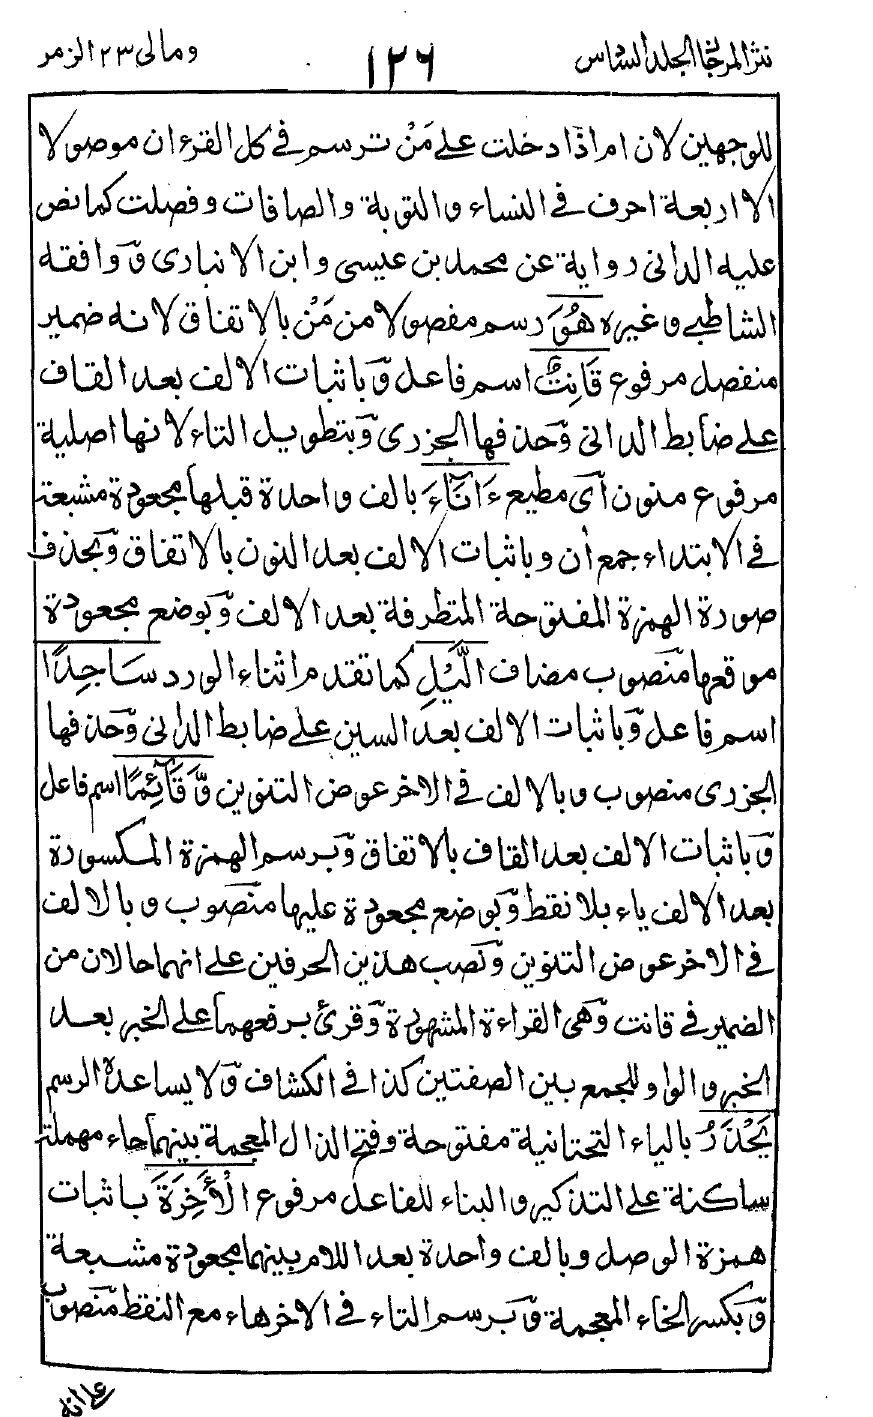 نثر المرجان الجلد السادس ١٢٦ ومالى ٢٣ الزمر
للوجهين لان ام اذا دخلت على مَنْ ترسم في كل القرءان موصولا
الا اربعة احرف في النساء والتوبة والصافات وفصلت كما نص
عليه الدانى رواية عن محمد بن عيسى وابن الانبارى وَوافقه
الشاطبى وغيره هُوَ رسم مفصولا من مَنْ بالاتفاق لانه ضمير
منفصل مرفوع قَانِتٌ اسم فاعل وَباثبات الالف بعد القاف
على ضابط الدانى وَحذفها الجزرى وَبتطويل التاء لانها اصلية
مرفوع منون اَى مطيع ءَانَآءَ بالف واحدة قبلها مجعودة مشبعة
في الابتداء جمع أن وباثبات الالف بعد النون بالاتفاق وَبحذف
صورة الهمزة المفتوحة المتطرفة بعد الالف وَبوضع مجعودة
موقعها منصوب مضاف الَّيْلِ كما تقدم اثناء الورد سَاجِدًا
اسم فاعل وَباثبات الالف بعد السين على ضابط الدانى وَحذفها
الجزرى منصوب وبالالف في الاخر عوض التنوين وَّقَآئِمًا اسم فاعل
وَباثبات الالف بعد القاف بالاتفاق وَبرسم الهمزة المكسورة
بعد الالف ياء بلا نقط وَبوضع مجعودة عليها منصوب وبالالف
في الاخر عوض التنوين وَنصب هذين الحرفين على انهما حالان من
الضمير في قانت وَهى القراءة المشهورة وَقرئ برفعهما على الخبر بعد
الخبر والواو للجمع بين الصفتين كذا في الكشاف وَلا يساعده الرسم
يَحْذَرُ بالياء التحتانية مفتوحة وفتح الذال المعجمة بينهما حاء مهملة
ساكنة على التذكير والبناء للفاعل مرفوع الْأَخِرَةَ باثبات
همزة الوصل وبالف واحدة بعد اللام بينهما مجعودة مشبعة
وَبكسر الخاء المعجمة وَبرسم التاء في الاخر هاء مع النقط منصوب
على انه